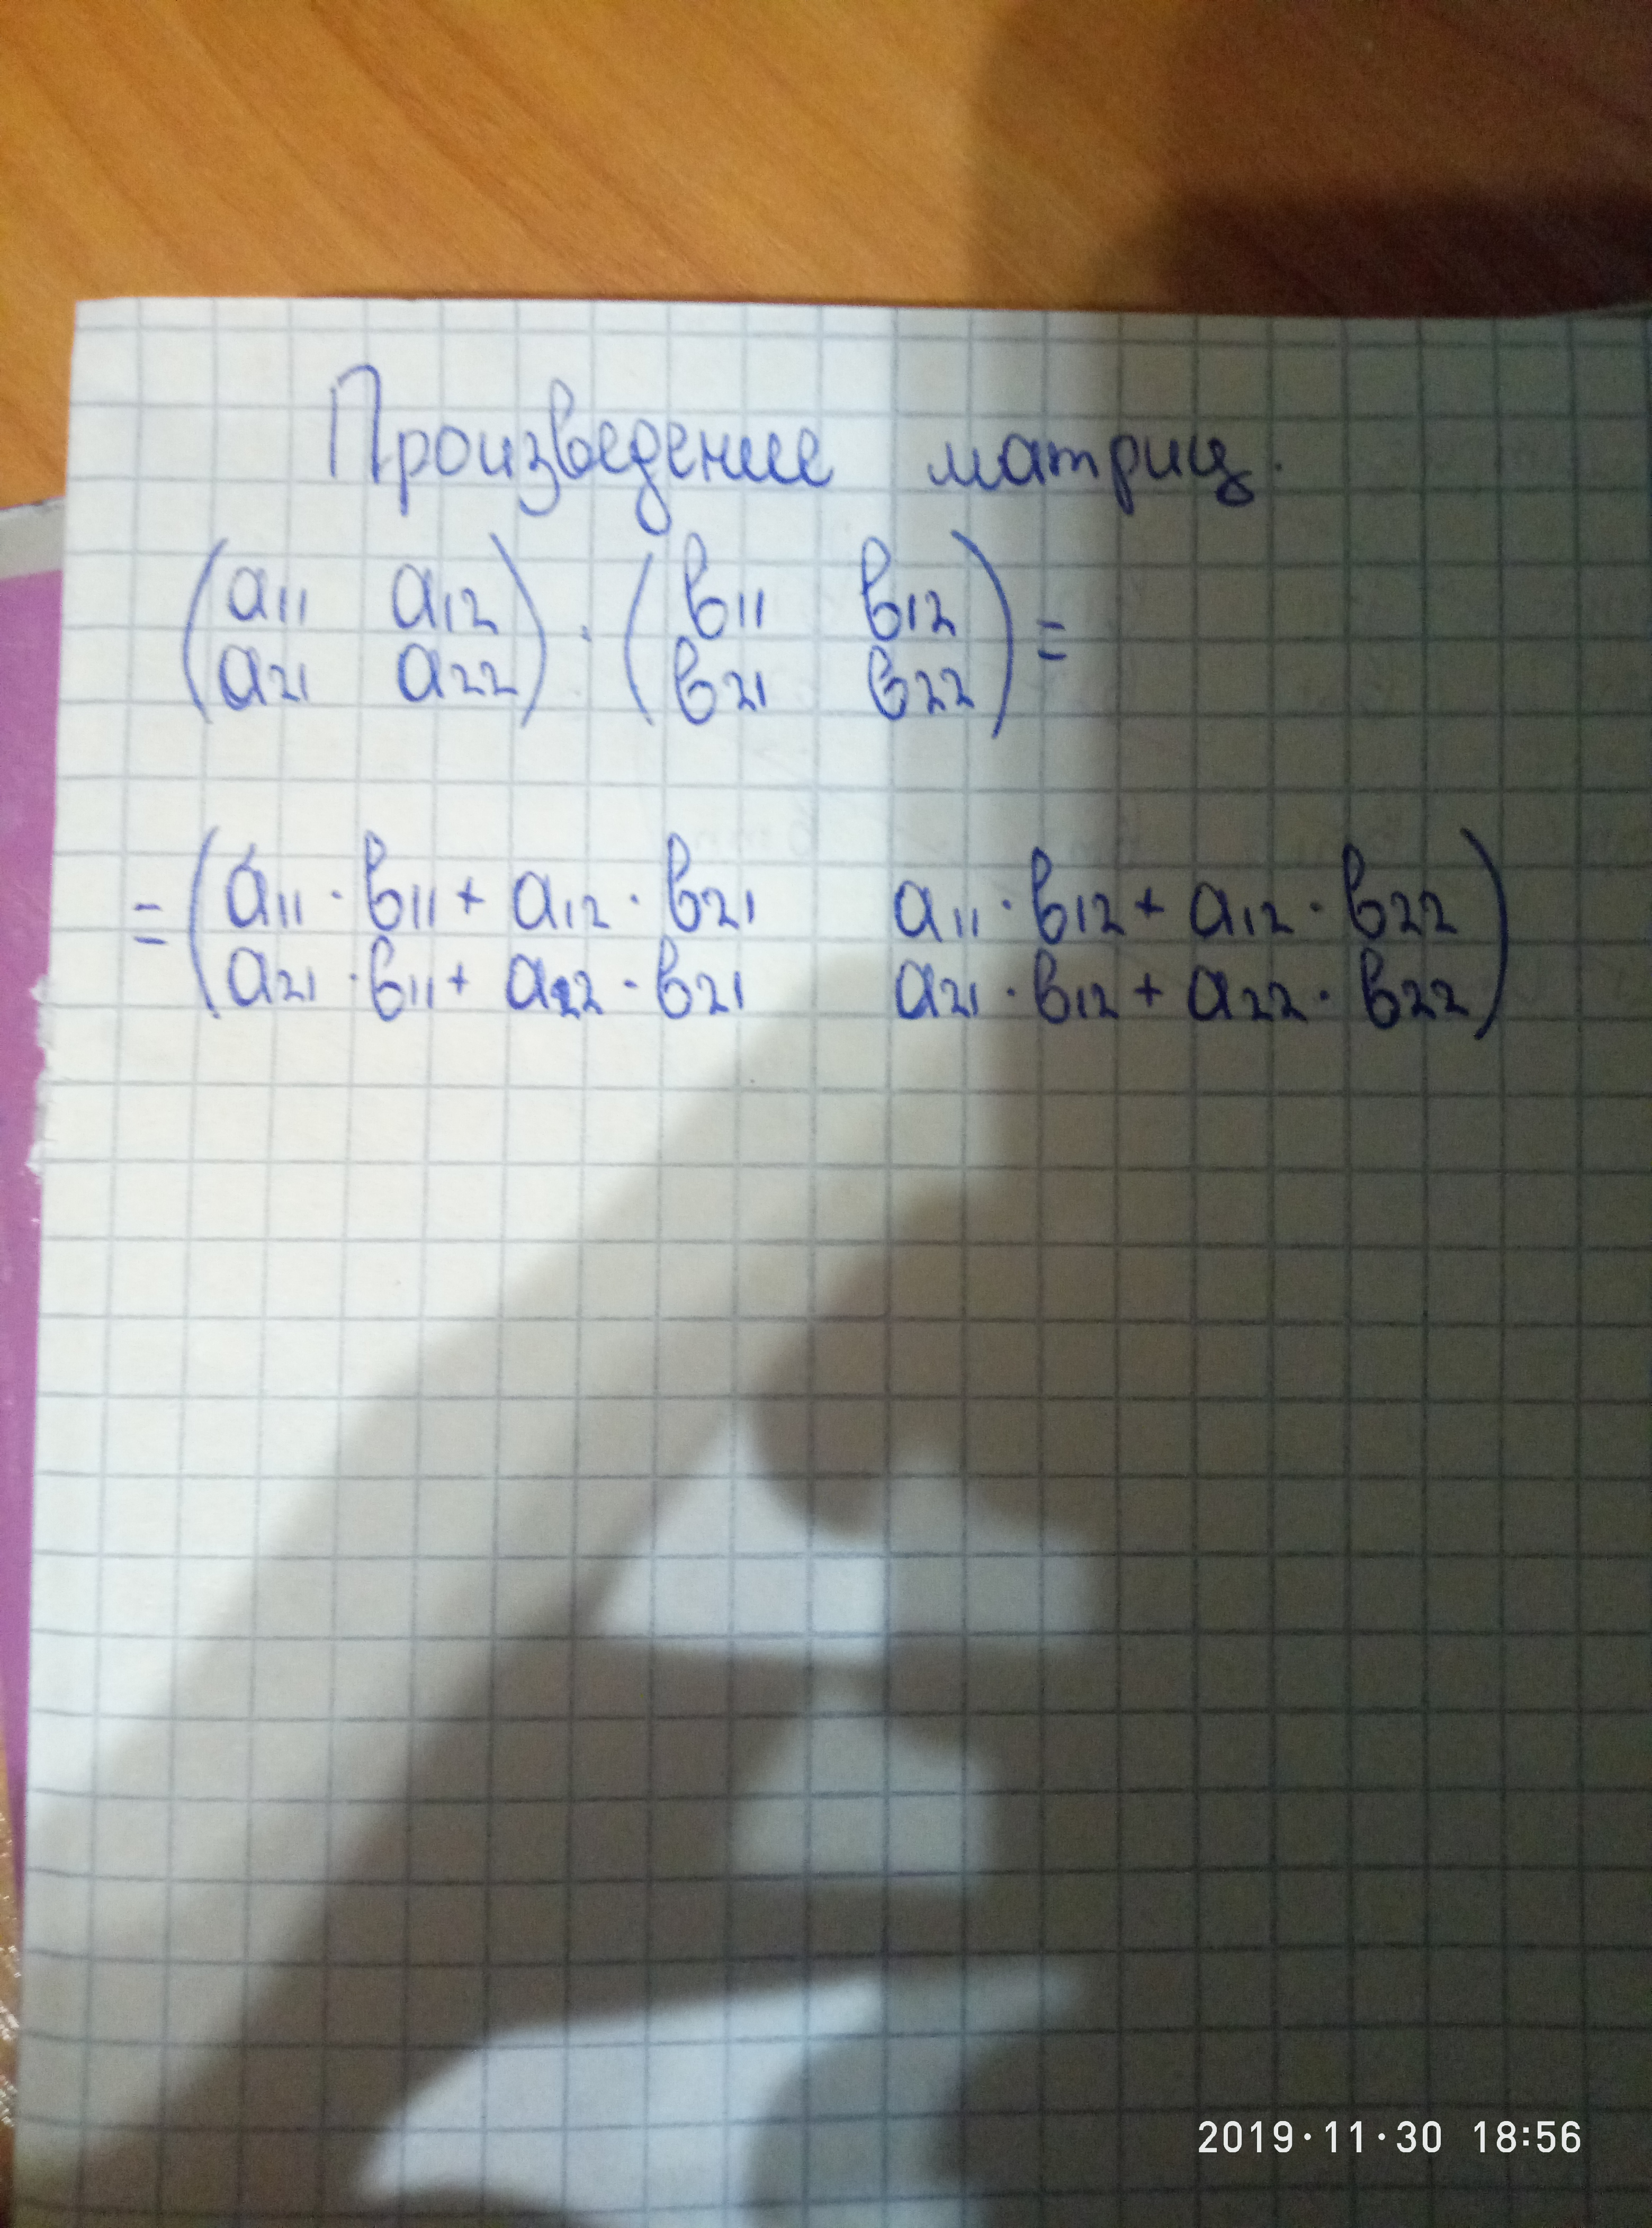 Произведение матриц.
(a11 a12) · (в11 в12) =
(a21 a22) (в21 в22)
= (a11 · в11 + a12 · в21 a11 · в12 + a12 · в22)
(a21 · в11 + a22 · в21 a21 · в12 + a22 · в22)
2019·11·30 18:56